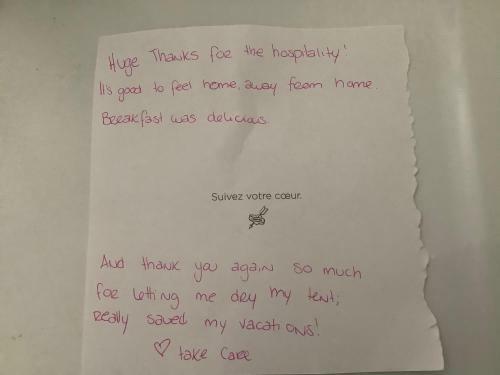 Huge Thanks for the hospitality!
It's good to feel home, away from home.
Breakfast was delicious.
Suivez votre cœur.
And thank you again so much
for letting me dry my tent;
really saved my vacations!
♡ take care